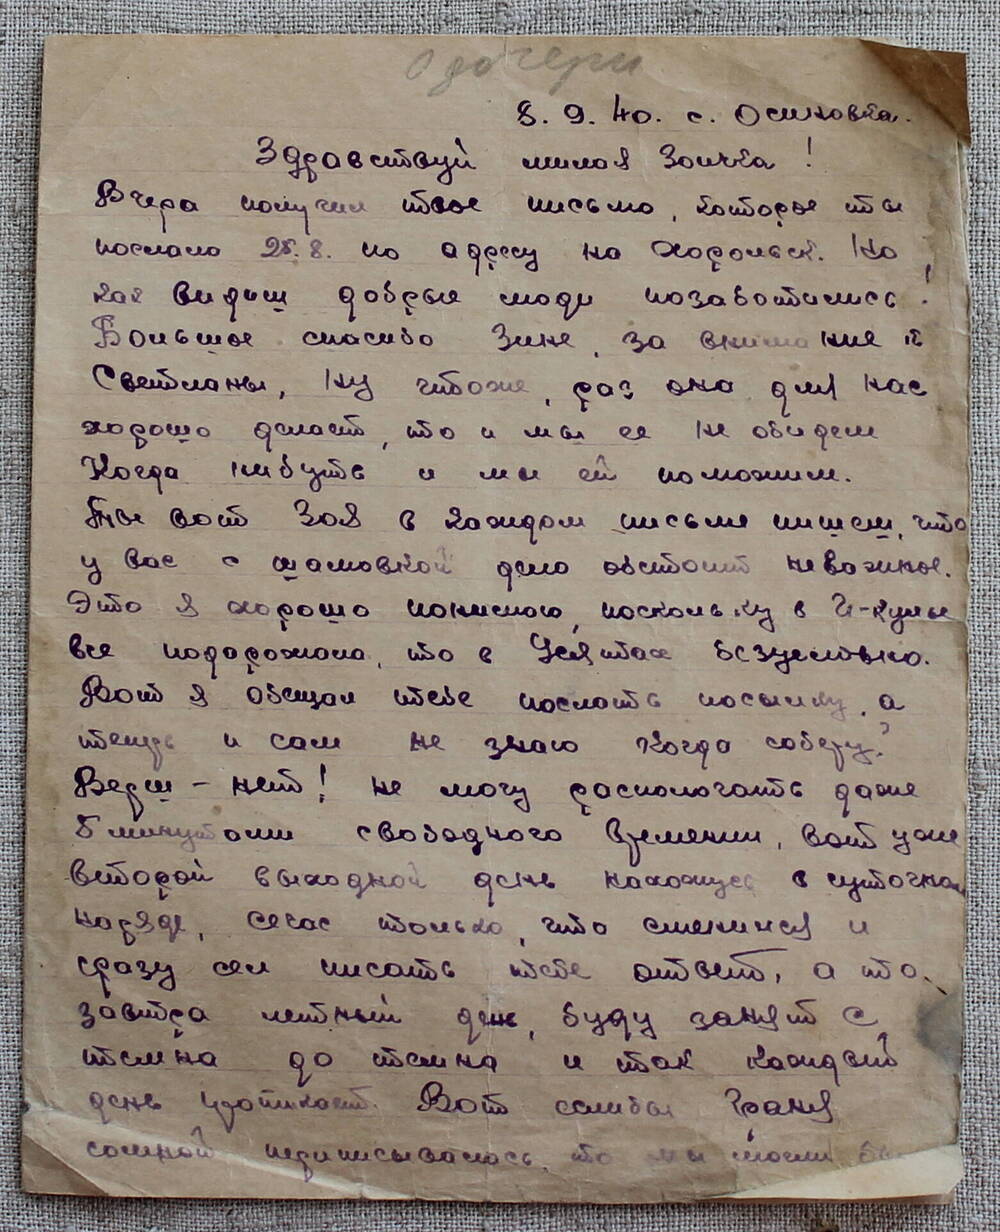 О дочери
8. 9. 40. с. Осиновка.
Здравствуй милая Зоичка!
Вчера получил твое письмо, которое ты
послала 28.8. по адресу на Хорольск. Но
как видиш добрые люди позаботились!
Большое спасибо Зине, за внимание к
Светланы, Ну чтоже, раз она для нас
хорошо делает, то и мы ее не обидем
Когда нибуть и мы ей поможим.
Ты вот Зоя в каждом письме пишеш, что
у вас с шамовкой дело обстоит неважное.
Это я хорошо понимаю, поскольку в
все подорожало, то в безусловно.
Вот я обещал тебе послать посылку, а
теперь и сам не знаю когда соберу?
Вериш - нет! не могу распологать даже
5 минутами свободного времении, вот уже
второй выходной день нахожусь в суточном
наряде, сечас только, что сменился и
сразу сел писать тебе ответ, а то
завтра летный день, буду занят с
темна до темна и так каждый
день Вот еслибы Граня
сомной переписывалась, то мы могли бы